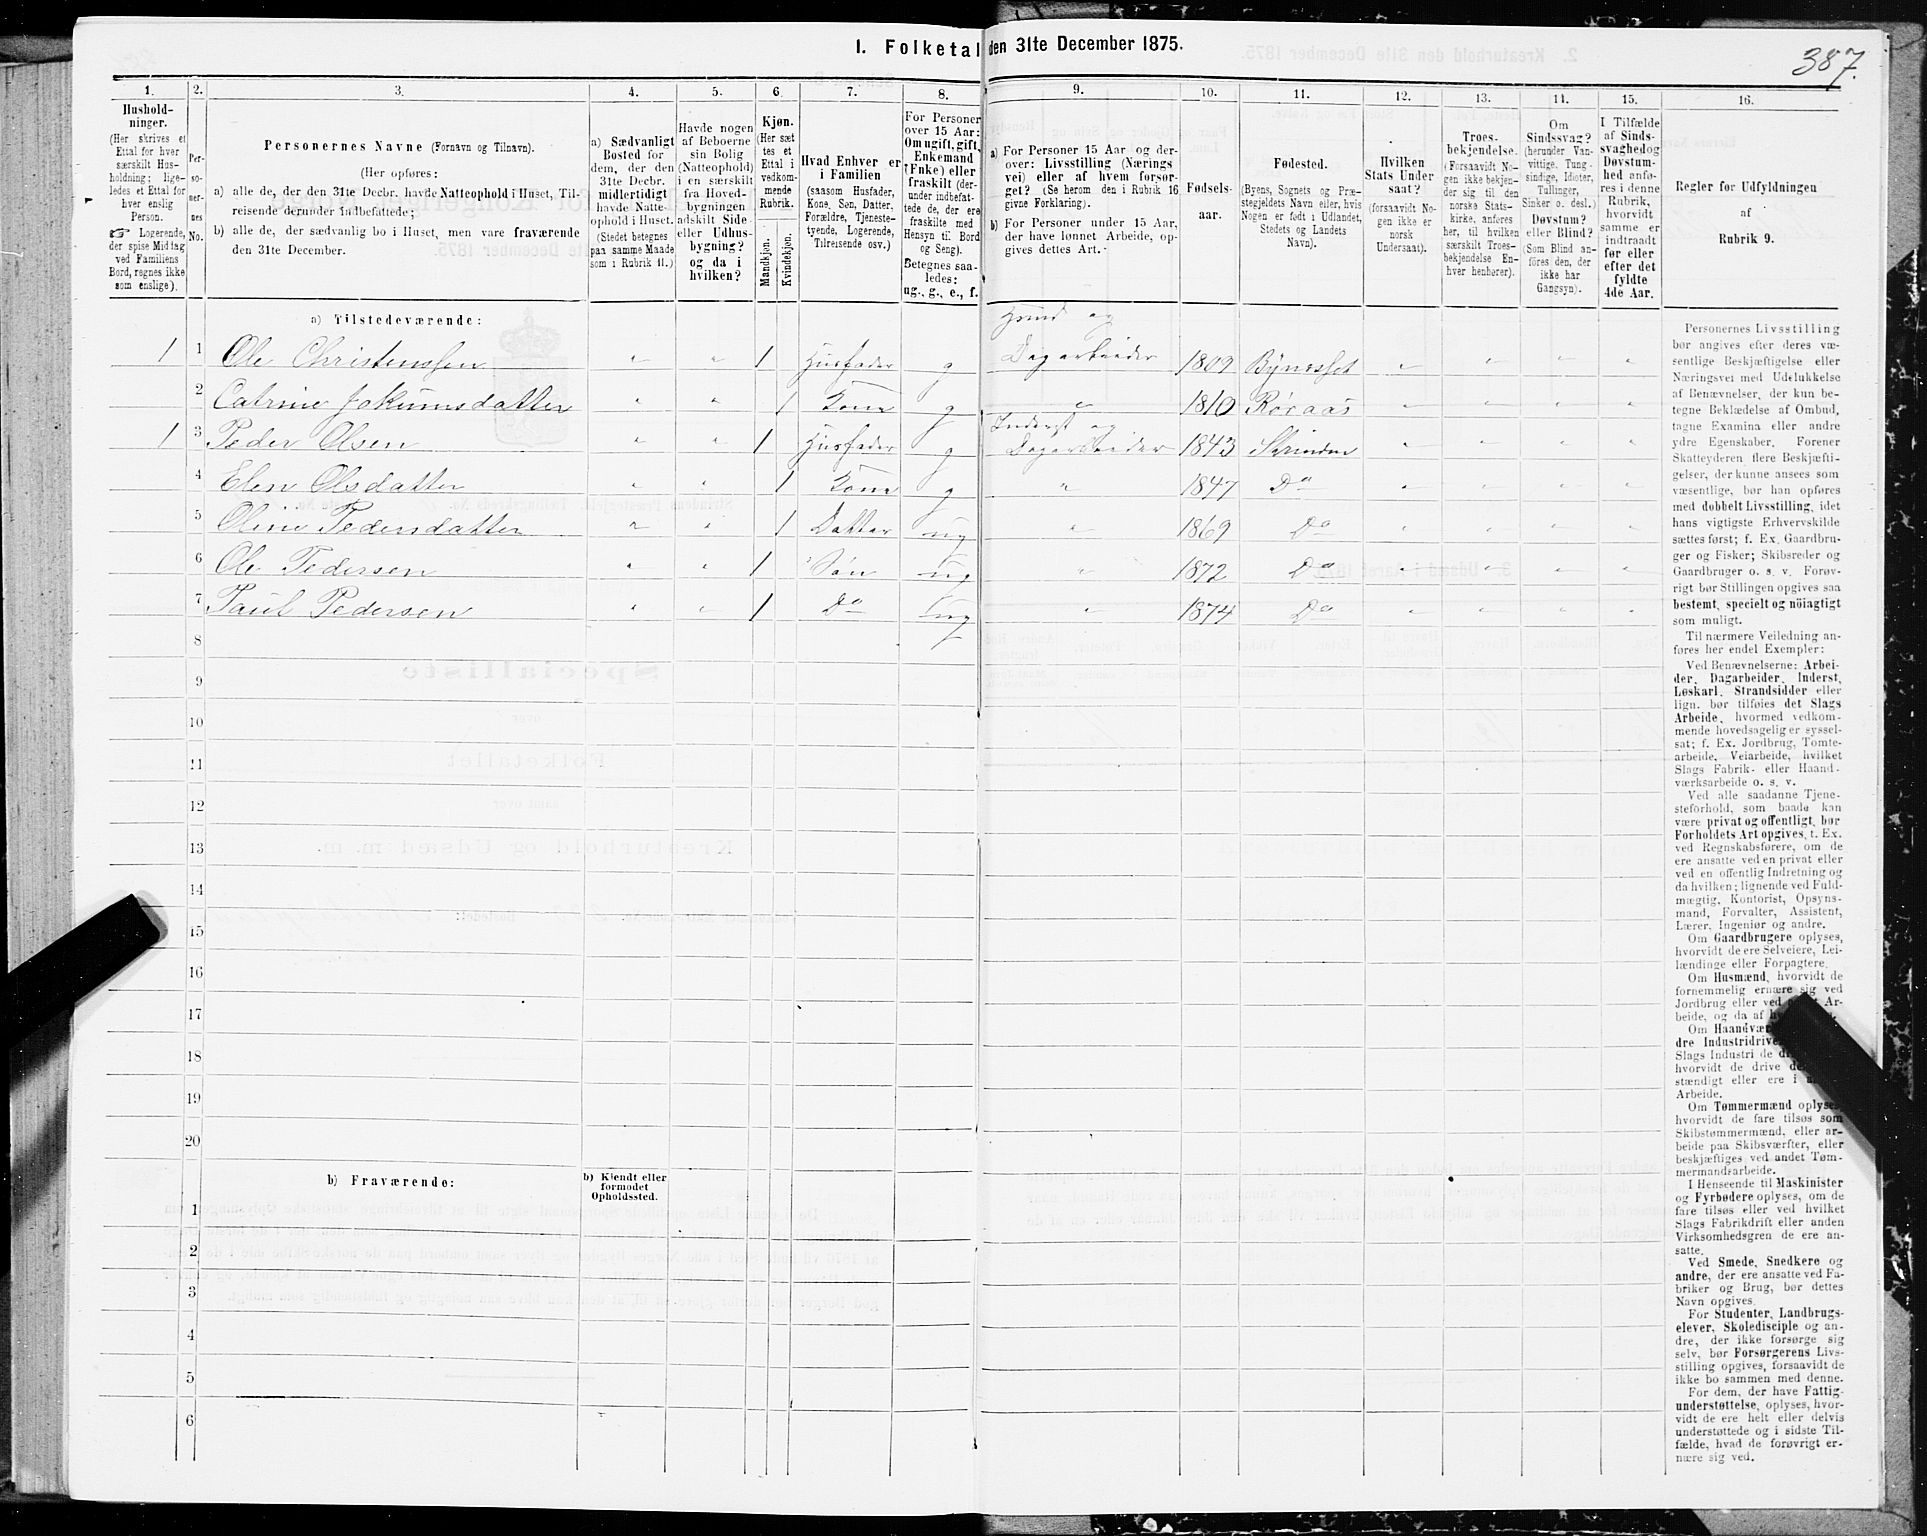 I. Folketal den 31te December 1875.
387.
1. 2. 3. 4. 5. 6. 7. 8. 9. 10. 11. 12. 13. 14. 15. 16.
Hushold-
ninger.
(Her skrives et
Ettal for hver
særskilt Hus-
holdning; lige-
ledes et Ettal for
hver enslig
Person.
☞ Logerende,
der spise Middag
ved Familiens
Bord, regnes ikke
som enslige).
Per-
so-
ner-
nes
No.
Personernes Navne (Fornavn og Tilnavn).
(Her opføres:
a) alle de, der den 31te Decbr. havde Natteophold i Huset, Til-
reisende derunder indbefattede;
b) alle de, der sædvanlig bo i Huset, men vare fraværende
den 31te December.
a) Sædvanligt
Bosted for
dem, der den
31te Decbr.
midlertidigt
havde Natte-
ophold i Huset.
(Stedet betegnes
paa samme Maade
som i Rubrik 11.)
Havde nogen
af Beboerne
sin Bolig
(Natteophold)
i en særskilt
fra Hoved-
bygningen
adskilt Side-
eller Udhus-
bygning?
og da i
hvilken?
Kjøn.
(Her sæt-
tes et
Ettal i
vedkom-
mende
Rubrik.
Mandkjøn.
Kvindekjøn.
Hvad Enhver er
i Familien
(saasom Husfader,
Kone, Søn, Datter,
Forældre, Tjeneste-
tyende, Logerende,
Tilreisende osv.)
For Personer
over 15 Aar:
Om ugift, gift,
Enkemand
(Enke) eller
fraskilt (der-
under indbefat-
tede de, der ere
fraskilte med
Hensyn til Bord
og Seng).
Betegnes saa-
ledes:
ug., g., e., f.
a) For Personer 15 Aar og der-
over: Livsstilling (Nærings
vei) eller af hvem forsør-
get? (Se herom den i Rubrik 16
givne Forklaring).
b) For Personer under 15 Aar,
der have lønnet Arbeide, op-
gives dettes Art.
Fødsels-
aar.
Fødested.
(Byens, Sognets og Præ-
stegjeldets Navn eller, hvis
Nogen er født i Udlandet,
Stedets og Landets
Navn).
Hvilken
Stats Under
saat?
(forsaavidt No-
gen ikke er
norsk
Undersaat).
Troes-
bekjendelse.
(Forsaavidt No-
gen ikke bekjen-
der sig til den
norske Stats-
kirke, anføres
her, til hvilken
særskilt Troes-
bekjendelse En-
hver henhører).
Om
Sindssvag?
(herunder Van-
vittige, Tung-
sindige, Idioter,
Tullinger,
Sinker o. desl.)
Døvstum?
eller Blind?
(Som Blind an-
føres den, der
ikke har
Gangsyn).
I Tilfælde
af Sinds-
svaghed og
Døvstum-
hed anfø-
res i denne
Rubrik,
hvorvidt
samme er
indtraadt
før eller
efter det
fyldte
4de Aar.
Regler for Udfyldningen
af
Rubrik 9.
a) Tilstedeværende:
Husmd og
1 1 Ole Christenssen " " 1 Husfader g Dagarbeider 1809 Bynesset " " " "
2 Catrine Jokumsdatter " " 1 Kone g " 1810 Røraas " " " "
Inderst og
1 3 Peder Olsen " " 1 Husfader g Dagarbeider 1843 Strinden " " " "
4 Elen Olsdatter " " 1 Kone g " 1847 Do " " " "
5 Oline Pedersdatter " " 1 Datter ug " 1869 Do " " " "
6 Ole Pedersen " " 1 Søn ug " 1872 Do " " " "
7 Paul Pedersen " " 1 Do ug " 1874 Do " " " "
8
9
10
11
12
13
14
15
16
17
18
19
20
b) Fraværende:
b) Kjendt eller
formodet
Opholdssted.
1
2
3
4
5
6
Personernes Livsstilling
bør angives efter deres væ-
sentlige Beskjæftigelse eller
Næringsvei med Udelukkelse
af Benævnelser, der kun be-
tegne Beklædelse af Ombud,
tagne Examina eller andre
ydre Egenskaber. Forener
Skatteyderen flere Beskjæfti-
gelser, der kunne ansees som
væsentlige, bør han opføres
med dobbelt Livsstilling, idet
hans vigtigste Erhvervskilde
sættes først; f. Ex. Gaardbru-
ger og Fisker; Skibsreder og
Gaardbruger o. s. v. Forøv-
rigt bør Stillingen opgives saa
bestemt, specielt og nöiagtigt
som muligt.
Til nærmere Veiledning an-
føres her endel Exempler:
Ved Benævnelserne: Arbei-
der, Dagarbeider, Inderst,
Løskarl, Strandsidder eller
lign. bør tilføies det Slags
Arbeide, hvormed vedkom-
mende hovedsagelig er syssel-
sat; f. Ex. Jordbrug, Tomte-
arbeide, Veiarbeide, hvilket
Slags Fabrik- eller Haand-
værksarbeide o. s. v.
Ved alle saadanne Tjene-
steforhold, som baade kan
være privat og offentligt, bør
Forholdets Art opgives, t. Ex.
ved Regnskabsførere, om de
ere ansatte ved en privat eller
ved en offentlig Indretning og
da hvilken; lignende ved Fuld-
mægtig, Kontorist, Opsyns-
mand, Forvalter, Assistent,
Lærer, Ingeniør og andre.
Om Gaardbrugere oplyses,
hvorvidt de ere Selveiere, Lei-
lændinge eller Forpagtere.
Om Husmænd, hvorvidt de
fornemmelig ernære sig ved
Jordbrug eller ved Ar-
beide, og da af
Om Haandvær
dre Industridrive
Slags Industri de
hvorvidt de drive
stændigt eller ere i
Arbeide.
Om Tømmermænd oplyses,
hvorvidt de fare tilsøs som
Skibstømmermænd, eller ar-
beide paa Skibsværfter, eller
beskjæftiges ved andet Tøm-
mermandsarbeide.
I Henseende til Maskinister
og Fyrbødere oplyses, om de
fare tilsøs eller ved hvilket
Slags Fabrikdrift eller anden
Virksomhedsgren de ere an-
satte.
Ved Smede, Snedkere og
andre, der ere ansatte ved Fa-
briker og Brug, bør dettes
Navn opgives.
For Studenter, Landbrugs-
elever, Skoledisciple og an-
dre, der ikke forsørge sig
selv, bør Forsørgerens Livs-
stilling opgives, forsaavidt de
ikke bo sammen med denne.
For dem, der have Fattig-
understøttelse, oplyses, hvor-
vidt de ere helt eller delvis
understøttede og i sidste Til-
fælde, hvad de forøvrigt er-
nære sig ved.